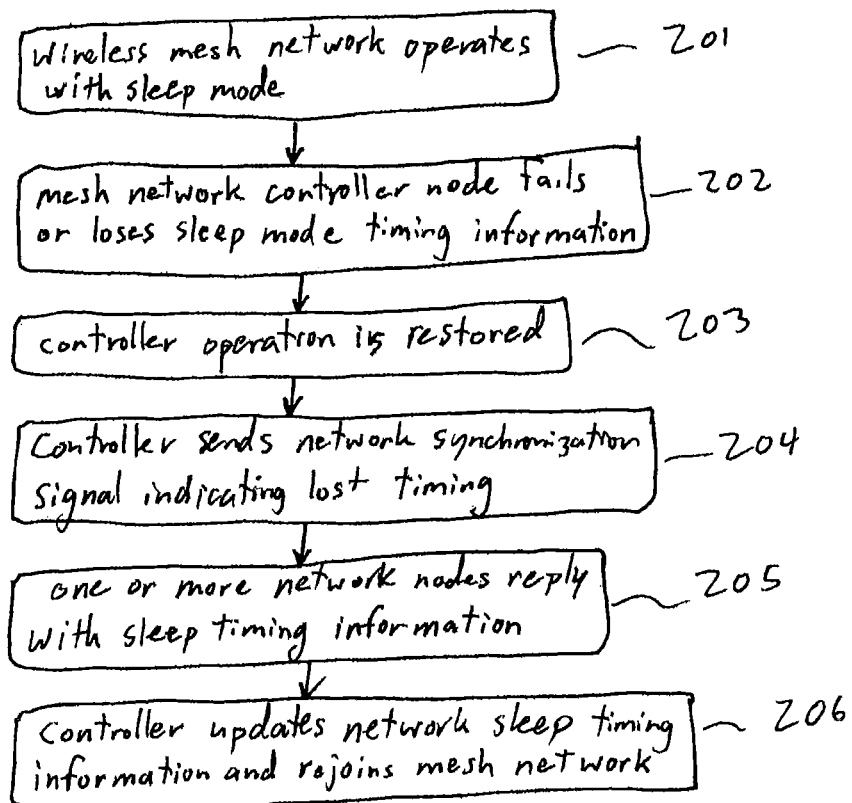 wireless mesh network operates
with sleep mode
201
mesh network controller node fails
or loses sleep mode timing information
202
controller operation is restored
203
Controller sends network synchronization
signal indicating lost timing
204
one or more network nodes reply
with sleep timing information
205
Controller updates network sleep timing
information and rejoins mesh network
206